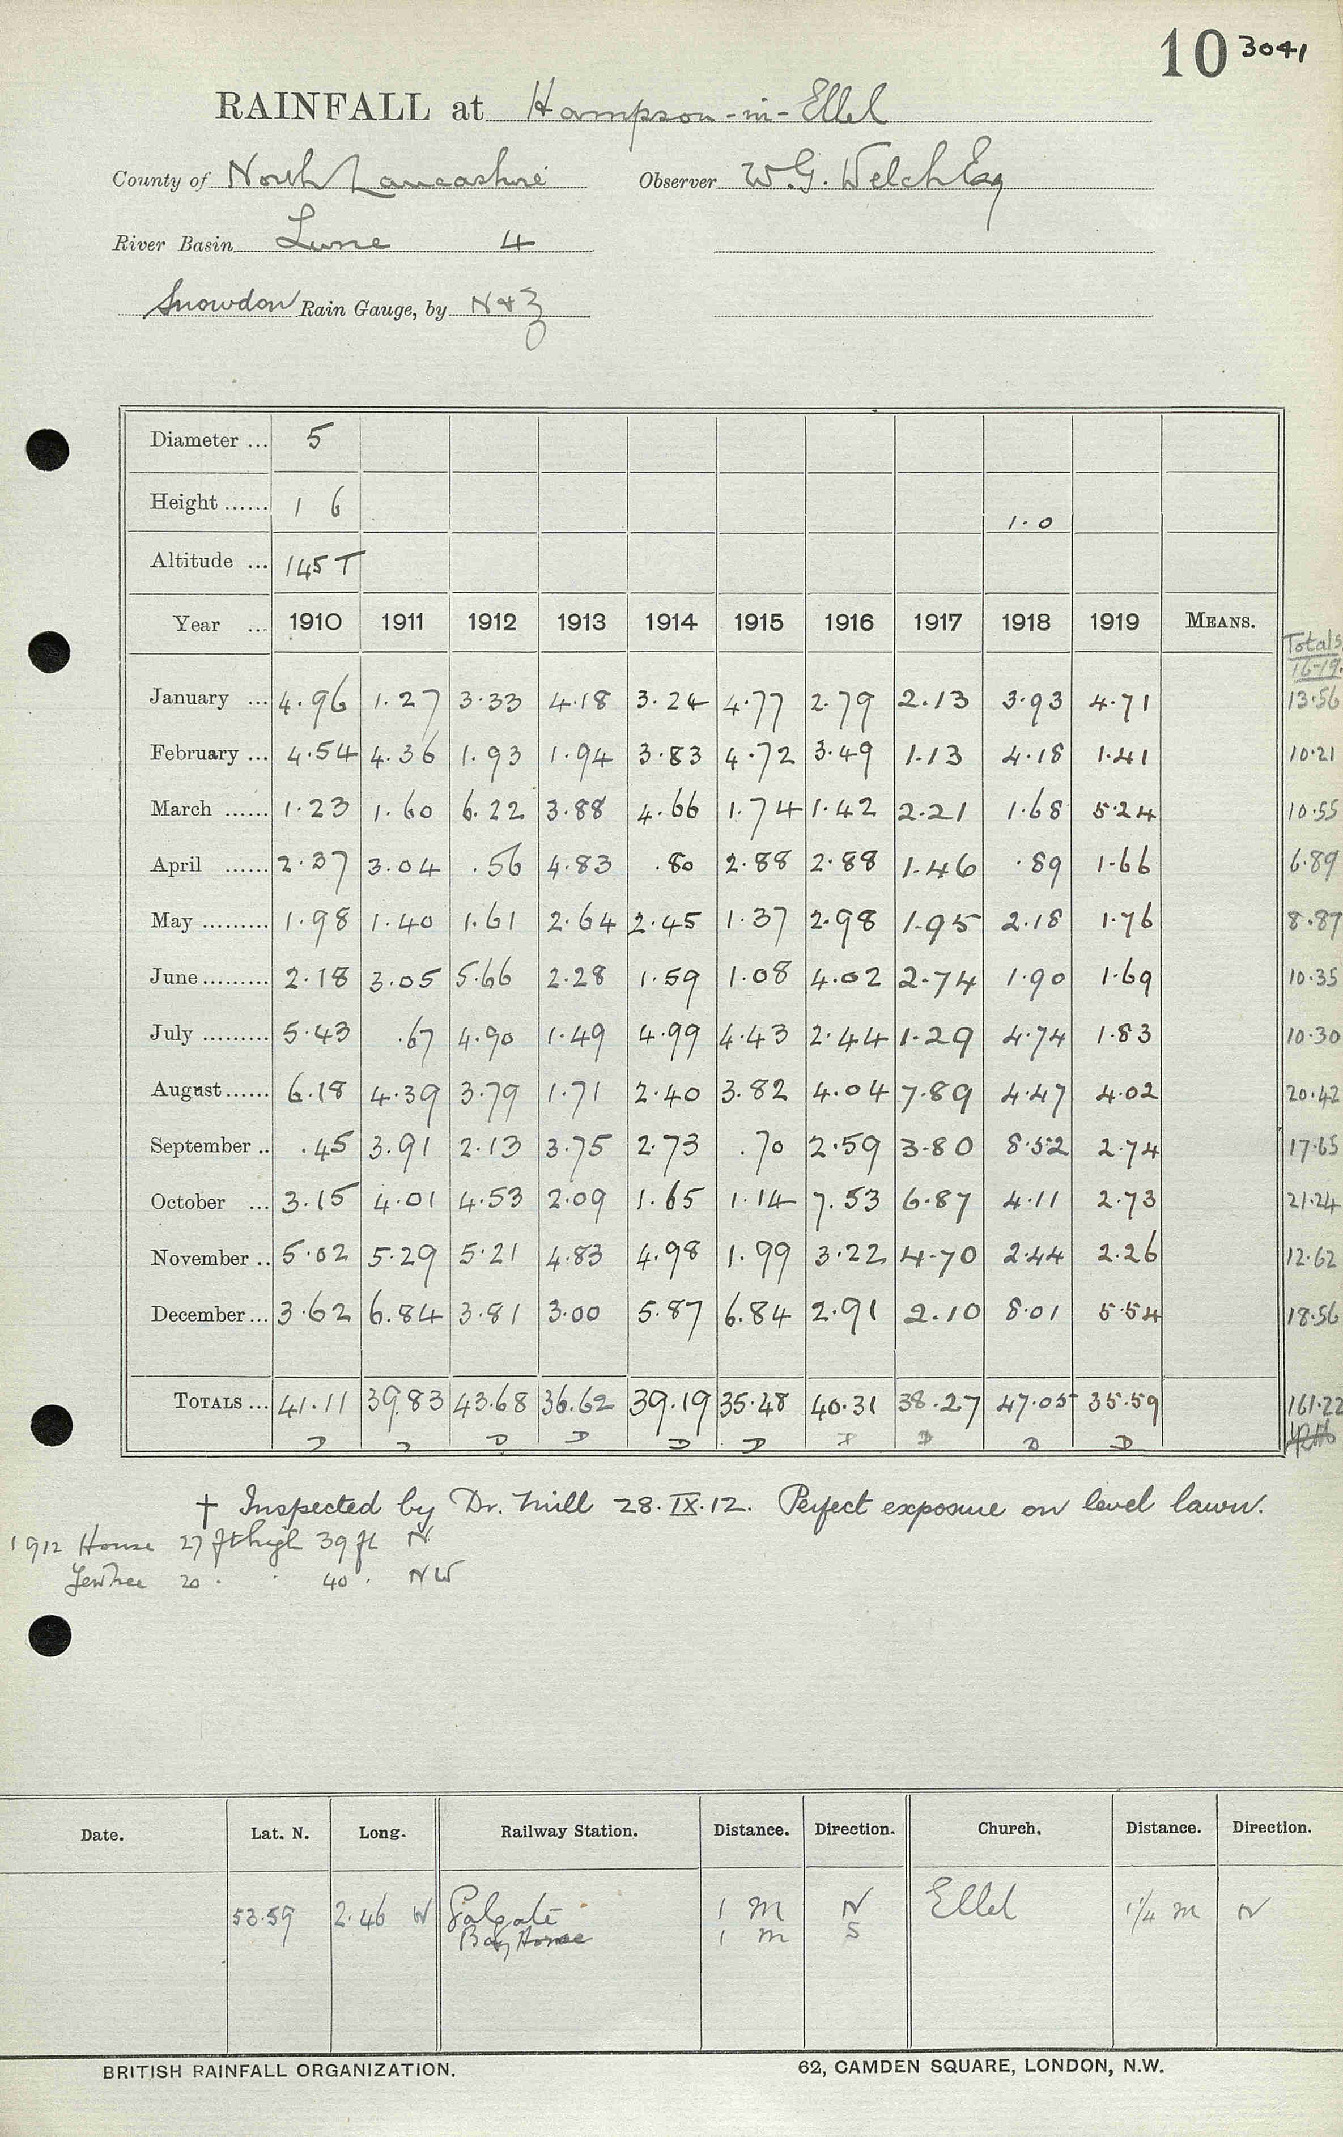 10 3041
RAINFALL at Hampson-in-Ellel
County of North Lancashire Observer W.G. Welch Esq
River Basin Lune 4
Snowdon Rain Gauge, by N & Z
Diameter ... 5
Height ...... 1 6 1.0
Altitude ... 145 T
Year ... 1910 1911 1912 1913 1914 1915 1916 1917 1918 1919 MEANS. Totals 16-19.
January ... 4.96 1.27 3.33 4.18 3.24 4.77 2.79 2.13 3.93 4.71 13.56
February ... 4.54 4.36 1.93 1.94 3.83 4.72 3.49 1.13 4.18 1.41 10.21
March ...... 1.23 1.60 6.22 3.88 4.66 1.74 1.42 2.21 1.68 5.24 10.55
April ...... 2.37 3.04 .56 4.83 .80 2.88 2.88 1.46 .89 1.66 6.89
May ......... 1.98 1.40 1.61 2.64 2.45 1.37 2.98 1.95 2.18 1.76 8.87
June ......... 2.18 3.05 5.66 2.28 1.59 1.08 4.02 2.74 1.90 1.69 10.35
July ......... 5.43 .67 4.90 1.49 4.99 4.43 2.44 1.29 4.74 1.83 10.30
August ...... 6.18 4.39 3.79 1.71 2.40 3.82 4.04 7.89 4.47 4.02 20.42
September .. .45 3.91 2.13 3.75 2.73 .70 2.59 3.80 8.52 2.74 17.65
October ... 3.15 4.01 4.53 2.09 1.65 1.14 7.53 6.87 4.11 2.73 21.24
November .. 5.02 5.29 5.21 4.83 4.98 1.99 3.22 4.70 2.44 2.26 12.62
December ... 3.62 6.84 3.81 3.00 5.87 6.84 2.91 2.10 8.01 5.54 18.56
TOTALS ... 41.11 39.83 43.68 36.62 39.19 35.48 40.31 38.27 47.05 35.59 161.22
D D D D D D D D D D
† Inspected by Dr. Mill 28.IX.12. Perfect exposure on level lawn.
1912 House 27 ft high 39 ft N
Yewtree 20 . . 40 . NW
Date. Lat. N. Long. Railway Station. Distance. Direction. Church. Distance. Direction.
53.59 2.46 W Galgate 1 m N Ellel 1/4 m N
Bay Horse 1 m S
BRITISH RAINFALL ORGANIZATION. 62, CAMDEN SQUARE, LONDON, N.W.